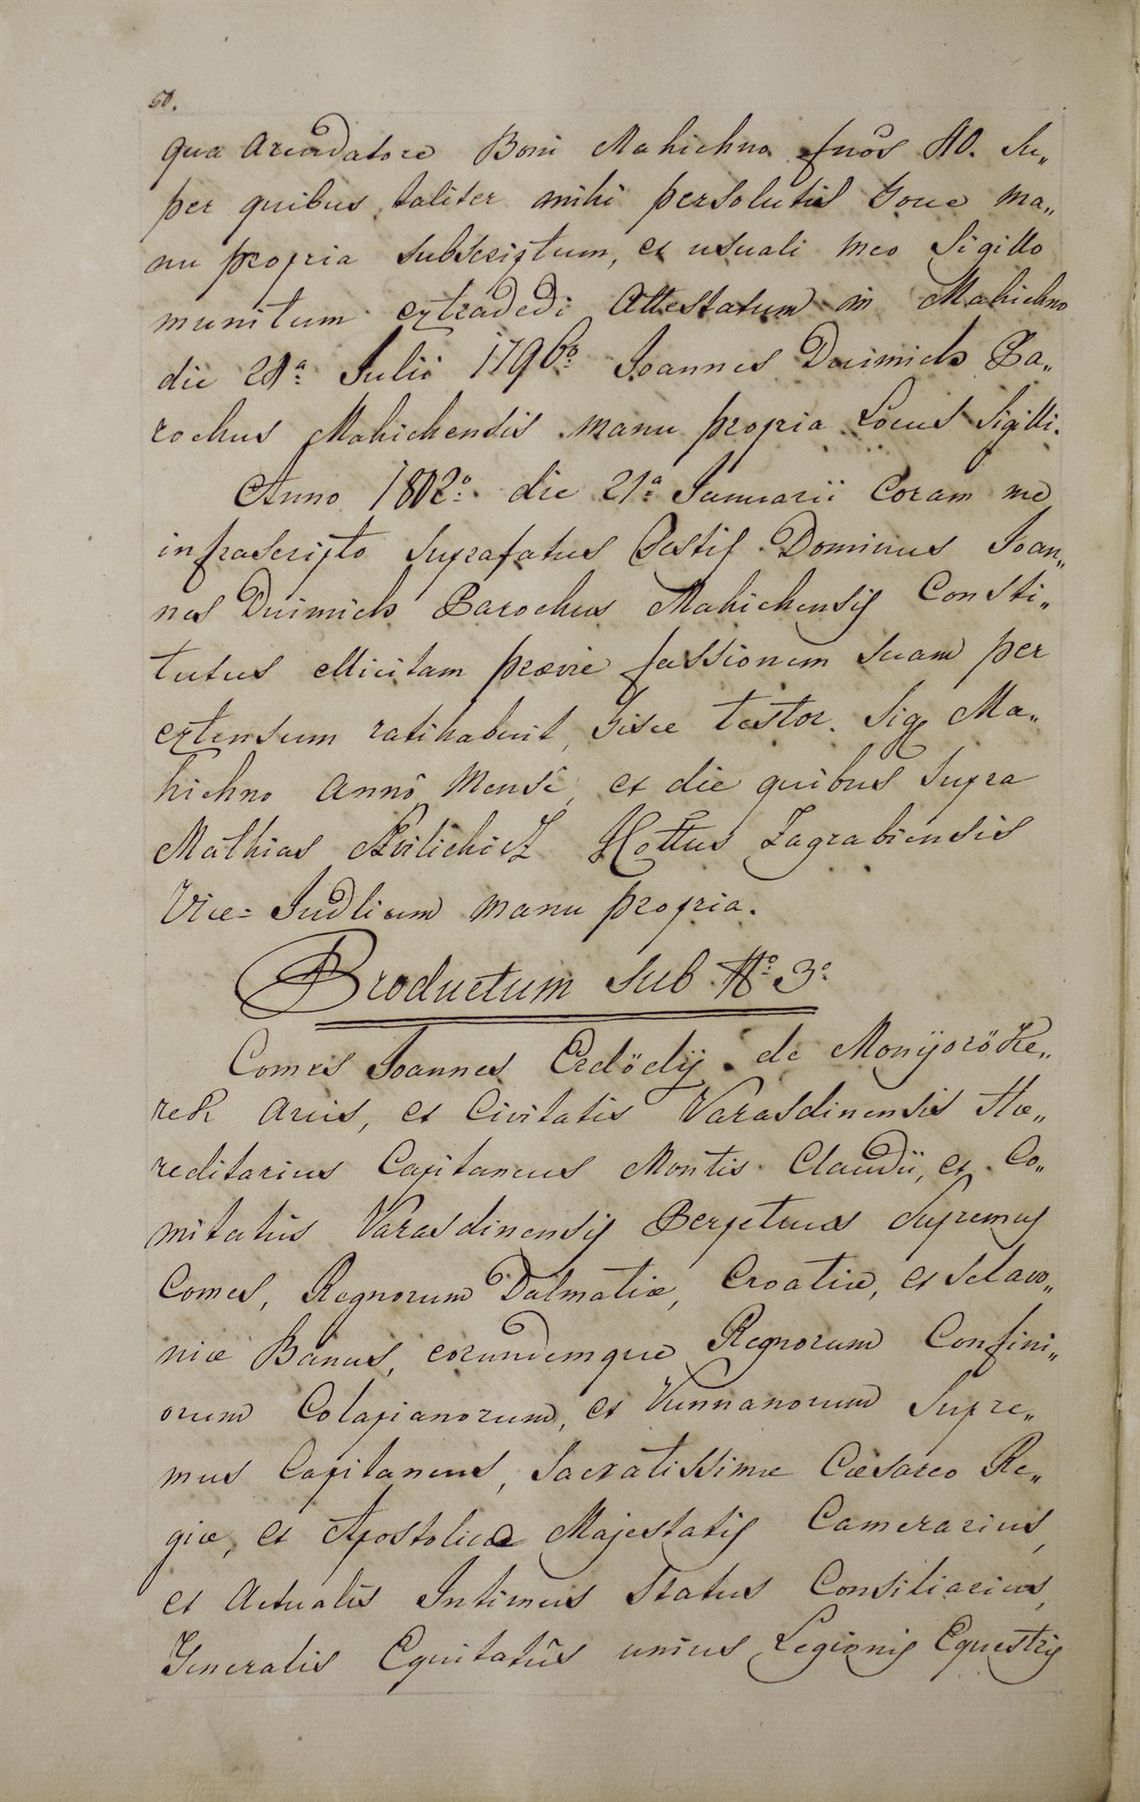 50.
qua Arendatore Boni Mahichno fnos 40. Su„
per quibus taliter mihi persolutis Hocce ma„
nu propria subscriptum, et usuali meo Sigillo
munitum extradedi Attestatum in Mahichno
die 29ª Julii 1796º Joannes Duimich Pa„
rochus Mahichensis manu propria Locus Sigilli.
Anno 1802º die 21ª Januarii Coram me
infrascripto suprafatus Testis Dominus Joan„
nes Duimich Parochus Mahichensis Consti„
tutus ellicitam prævie fassionem suam per
extensum ratihabuit, hisce testor. Sig Ma„
hichno Annô Mense, et die quibus supra
Mathias I Cottus Zagrabiensis
Vice= Judlium manu propria.
Productum sub Nº 3º
Comes Joannes Erdödÿ de Monÿoröke„
rek Arcis, et Civitatis Varasdinensis Hæ„
reditarius Capitaneus Montis Claudii, et Co„
mitatûs Varasdinensis Perpetuus Supremus
Comes, Regnorum Dalmatiæ, Croatiæ, et Sclavo„
niæ Banus, eorundemque Regnorum Confini„
orum Colapianorum, et Vunnanorum Supre„
mus Capitaneus, Sacratissimæ Cæsareo Re„
giæ, et Apostolicæ Majestatis Camerarius,
et Actualis Intimus Status Consiliarius,
Generalis Equitatûs unius Legionis Equestris